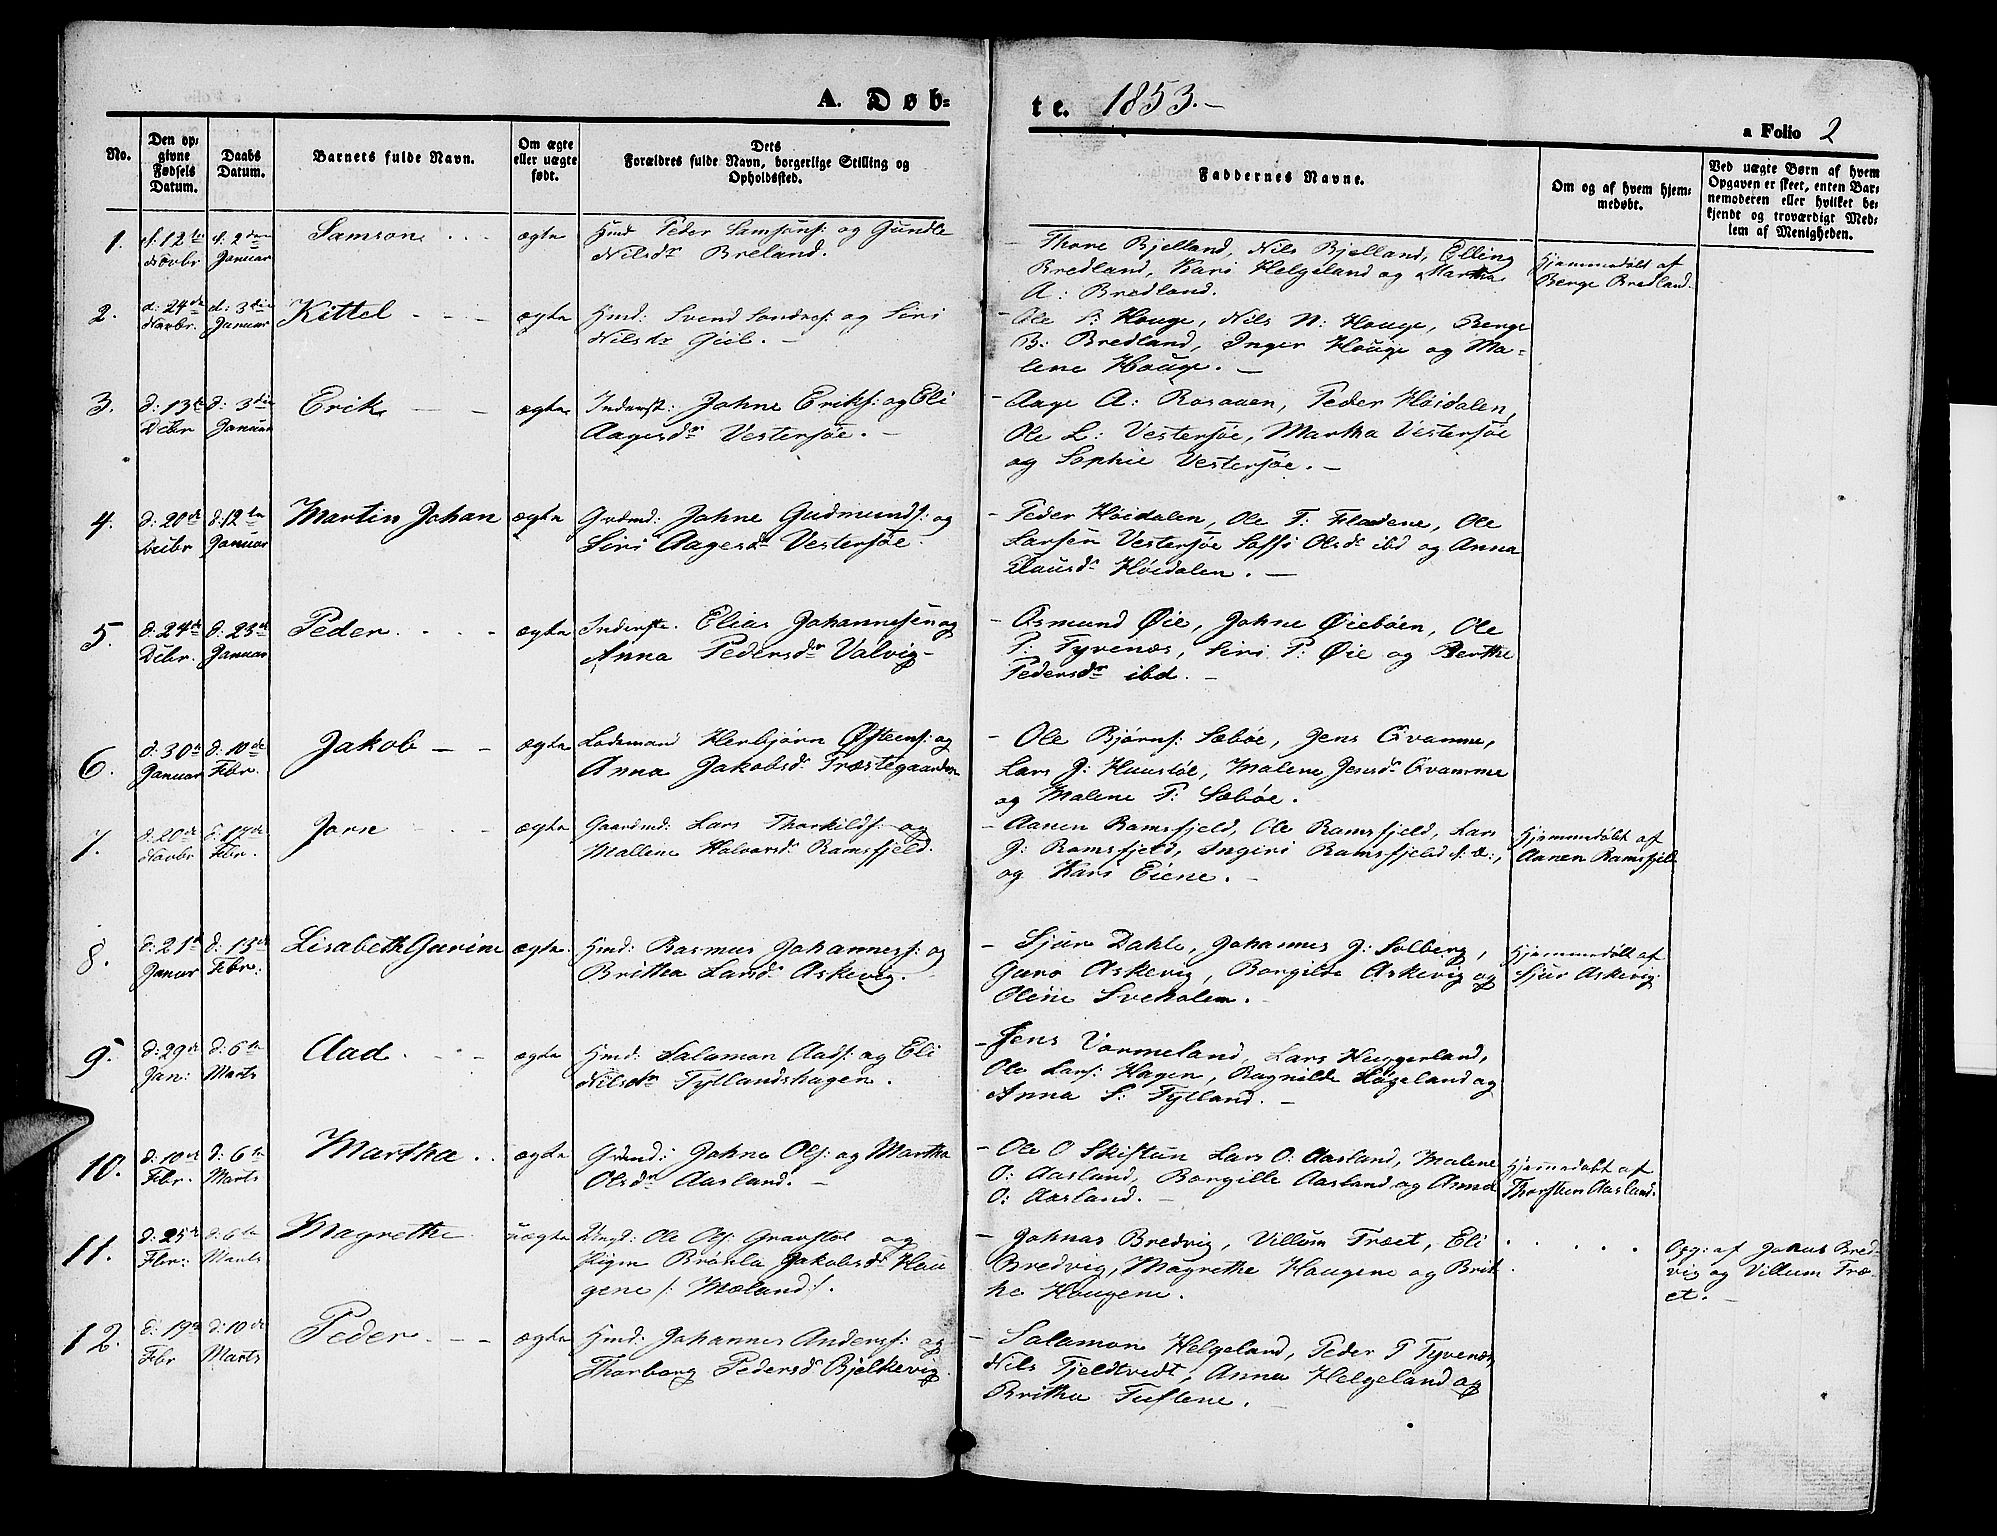 A. Døb-
te. 1853.-
a Folio 2
No.
Den op-
givne
Fødsels
Datum.
Daabs
Datum.
Barnets fulde Navn.
Om ægte
eller uægte
født.
Dets
Forældres fulde Navn, borgerlige Stilling og
Opholdssted.
Faddernes Navne.
Om og af hvem hjem-
medøbt.
Ved uægte Børn af hvem
Opgaven er skeet, enten Bar-
nemoderen eller hvilket be-
kjendt og troværdigt Med-
lem af Menigheden.
1. d: 12te Novbr d: 2den Januar Samson ægte
Hmd Peder Samsons: og Gundle
Nilsdr Breland.
- Thore Bjelland, Nils Bjelland, Elling
Bredland, Kari Helgeland og Martha
A: Bredland.
Hjemmedøbt af
Berge Bredland.
2. d: 24de Novbr. d: 3die Januar Kittel ægte
Hmd: Svend Sondres: og Siri
Nilsdr Giil. -
- Ole S: Houge, Nils N: Houge, Berge
B: Bredland, Inger Houge og Ma-
lene Houge. -
3. d: 13de Debr d: 3die Januar Erik ægte
Inderst: Johne Eriks: og Eli
Aagesdr Vestersøe. -
- Aage A: Rosaaen, Peder Høidalen,
Ole L: Vestersøe, Martha Vestersøe
og Sophie Vestersøe. -
4. d: 20de Debr d: 12te Januar Martin Johan ægte
Grdmd: Johne Gudmunds: og
Siri Aagesdr Vestersøe.
- Peder Høidalen, Ole T: Fladene, Ole
Larsen Vestersøe Soffi Olsdr ibd og Anna
Clausdr Høidalen. -
5. d: 24de Debr. d: 23de Januar Peder ægte
Inderste. Elias Johannesen og
Anna Pedersdr Valvig-
- Osmund Øie, Johne Øiebøen, Ole
P: Tyvenæs, Siri P: Øie og Berthe
Pedersdr ibd. -
6. d: 30te Januar d: 10de Fbr. Jakob - - ægte
Lodsmand Herbjørn Østeens: og
Anna Jakobsdr Præstegaarden
- Ole Bjørns: Sæbøe, Jens Qvamme,
Lars J: Huustøe, Malene Jensdr Qvamme
og Malene P: Sæbøe.
7. d: 20de Novbr d: 12de Fbr. Jone ægte
Gaardmd: Lars Thorkilds: og
Mallene Halvorsdr Ramsfjeld.
- Aanen Ramsfjeld, Ole Ramsfjeld, Lars
J: Ramsfjeld, Ingeri Ramsfjeld s: æ:,
og Kari Eiene. -
Hjemmedøbt af
Aanen Ramsfjeld
8. d: 21de Januar d: 13de Fbr: Lisabeth Gurine ægte
Hmd: Rasmus Johanness: og
Britha Larsdr Askevig.
- Sjur Dahle, Johannes J: Solberg,
Guro Askevig, Borgilde Askevig og
Oline Sveholm. -
Hjemmedøbt af
Sjur Askevig.
9. d: 29de Jan: d: 6te Marts Aad ægte
Hmd: Salamon Aads: og Eli
Nilsdr Tytlandshagen.
- Jens Vormeland, Lars Heggerland,
Ole Lars: Hagen, Ragnilde Høgeland og
Anna S: Tytland. -
10. d: 10de Fbr. d: 6te Marts Martha ægte
Grdmd: Johne Ols: og Martha
Olsdr Aasland. -
- Ole O Skistun Lars O: Aasland, Malene
O: Aasland, Borgille Aasland og Anna
O: Aasland. -
Hjemmedøbt af
Thorsteen Aasland.
11. d: 25de Fbr: d: 6te Marts Magrethe uægte
Ungd: Ole Ols: Gravstøe og
Pigen Brønla Jakobsdr Hau-
gene /: Moland:/.
- Johnas Bredvig, Villum Træet, Eli
Bredvig, Magrethe Haugene og Brit-
he Haugene.
Opg: af Johnas Bred-
vig og Villum Træ-
et. -
12. d: 19de Fbr d: 10de Marts Peder - - ægte
Hmd: Johannes Anderss: og
Thorborg Pedersdr Bjelkevig.
- Salamon Helgeland, Peder P Tyvenæs,
Nils Fjeldtvedt, Anna Helgeland og
Britha Tuftene. -